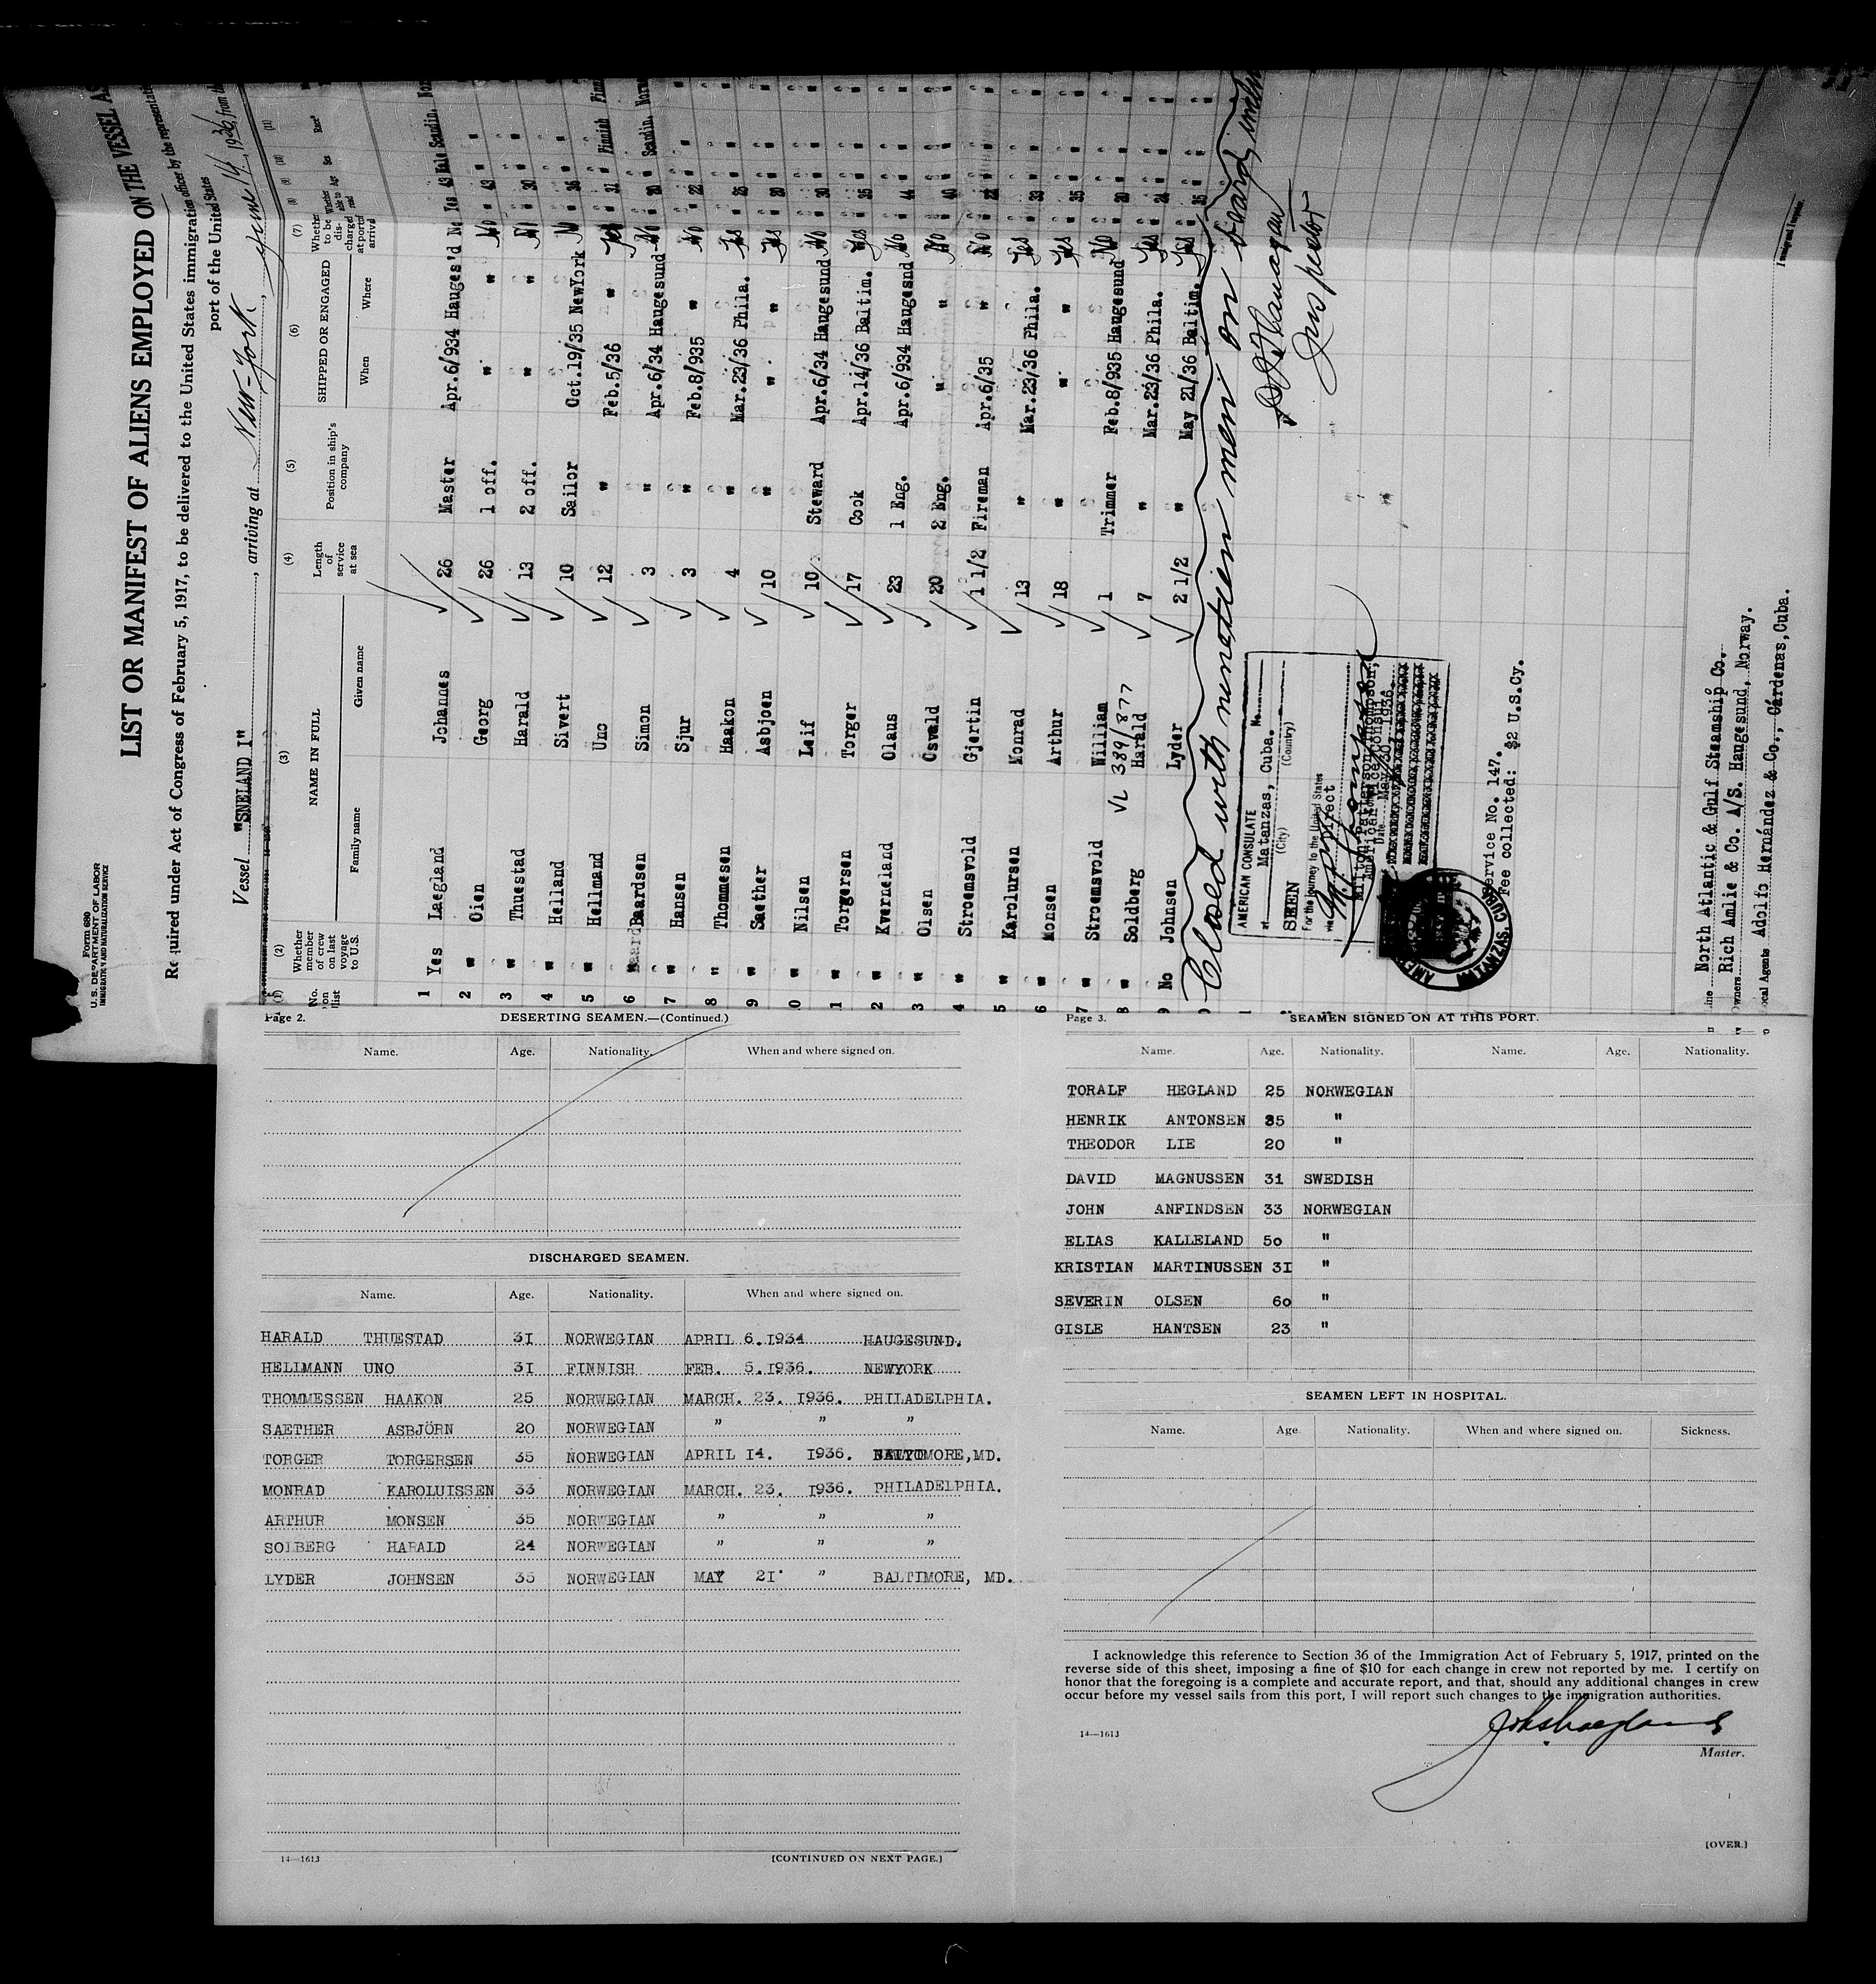 Form 680
U.S. DEPARTMENT OF LABOR
IMMIGRATION AND NATURALIZATION SERVICE
LIST OR MANIFEST OF ALIENS EMPLOYED ON THE VESSEL AS
Required under Act of Congress of February 5, 1917, to be delivered to the United States immigration officer by the representati
port of the United States
Vessel "SNELAND I", arriving at New-York, June 14, 1936, from the
(1) (2) (3) (4) (5) (6) (7) (8) (9) (10) (11)
No. on list Whether member of crew on last voyage to U.S. NAME IN FULL Length of service at sea Position in ship's company SHIPPED OR ENGAGED Whether to be discharged at port of arrival Whether able to read Age Sex Race
Family name Given name When Where
1 Yes Laegland Johannes 26 Master Apr.6/934 Hauges'd No Yes 43 Male Scandin. Nor
2 " Oien Georg 26 1 off. " " No " 43 " "
3 " Thuestad Harald 13 2 off. " " " 30 " "
4 " Helland Sivert 10 Sailor Oct.19/35 NewYork " 36 " "
5 " Hellmand Uno 12 " Feb.5/36 " Yes " 31 " Finnish Finn
6 " Baardsen Simon 3 " Apr.6/34 Haugesund No " 20 " Scandin. Norw
7 " Hansen Sjur 3 " Feb.8/935 " No " 22 " "
8 " Thommesen Haakon 4 " Mar.23/36 Phila. Yes " 25 " "
9 " Saether Asbjoen 10 " " " Yes " 20 " "
0 " Nilsen Leif 10 Steward Apr.6/34 Haugesund No " 30 " "
1 " Torgersen Torger 17 Cook Apr.14/36 Baltim. Yes " 35 " "
2 " Kverneland Olaus 23 1 Eng. Apr.6/934 Haugesnd No " 44 " "
3 " Olsen Osvald 20 2 Eng. " " No " 40 " "
4 " Stroemsvold Gjertin 1 1/2 Fireman Apr.6/35 " No " 22 " "
5 " Karolursen Monrad 13 " Mar.23/36 Phila. Yes " 33 " "
6 " Monsen Arthur 18 " " " Yes " 35 " "
7 " Stroemsvold William 1 Trimmer Feb.8/935 Haugesund No " 20 " "
VL 389/877
8 " Soldberg Harald 7 " Mar.23/36 Phila. Yes " 24 " "
9 No Johnsen Lyder 2 1/2 " May 21/36 Baltim. Yes " 35 " "
Closed with nineteen men on board
Inspector
AMERICAN CONSULATE
at Matanzas, Cuba. No.
(City) (Country)
SEEN
For the journey to the United States
via Direct
American Vice Consul
Date May/30/1936
MATANZAS, CUBA
Service No. 147.
Fee collected: $2 U.S.Cy.
Line North Atlantic & Gulf Steamship Co.
Owners Rich Amlie & Co. A/S. Haugesund, Norway.
Local Agents Adolfo Hernández & Co., Cárdenas, Cuba.
Page 2. DESERTING SEAMEN.—(Continued.)
Name. Age. Nationality. When and where signed on.
DISCHARGED SEAMEN.
Name. Age. Nationality. When and where signed on.
HARALD THUESTAD 31 NORWEGIAN APRIL 6.1934 HAUGESUND.
HELLMANN UNO 31 FINNISH FEB. 5.1936. NEWYORK
THOMMESSEN HAAKON 25 NORWEGIAN MARCH. 23. 1936. PHILADELPHIA.
SAETHER ASBJÖRN 20 NORWEGIAN " " "
TORGER TORGERSEN 35 NORWEGIAN APRIL 14. 1936. BALTIMORE,MD.
MONRAD KAROLUISSEN 33 NORWEGIAN MARCH. 23. 1936. PHILADELPHIA.
ARTHUR MONSEN 35 NORWEGIAN " " "
SOLBERG HARALD 24 NORWEGIAN " " "
LYDER JOHNSEN 35 NORWEGIAN MAY 21 " BALTIMORE, MD.
14—1613 [CONTINUED ON NEXT PAGE.]
Page 3. SEAMEN SIGNED ON AT THIS PORT.
Name. Age. Nationality. Name. Age. Nationality.
TORALF HEGLAND 25 NORWEGIAN
HENRIK ANTONSEN 35 "
THEODOR LIE 20 "
DAVID MAGNUSSEN 31 SWEDISH
JOHN ANFINDSEN 33 NORWEGIAN
ELIAS KALLELAND 50 "
KRISTIAN MARTINUSSEN 31 "
SEVERIN OLSEN 60 "
GISLE HANTSEN 23 "
SEAMEN LEFT IN HOSPITAL.
Name. Age. Nationality. When and where signed on. Sickness.
I acknowledge this reference to Section 36 of the Immigration Act of February 5, 1917, printed on the
reverse side of this sheet, imposing a fine of $10 for each change in crew not reported by me. I certify on
honor that the foregoing is a complete and accurate report, and that, should any additional changes in crew
occur before my vessel sails from this port, I will report such changes to the immigration authorities.
14—1613
Master.
[OVER.]